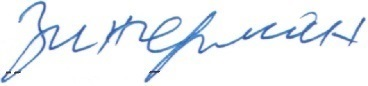 Зингерман